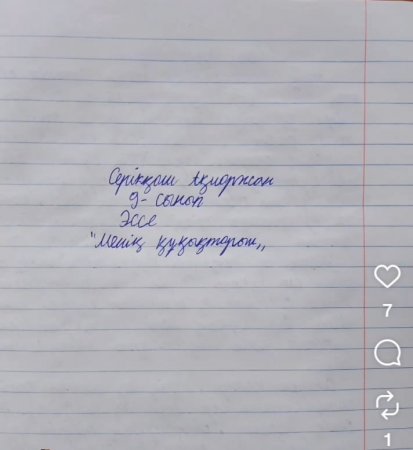 Серікқош Ақиоржан
9- сынып
Эссе
"Менің құқықтарым,,
7
1